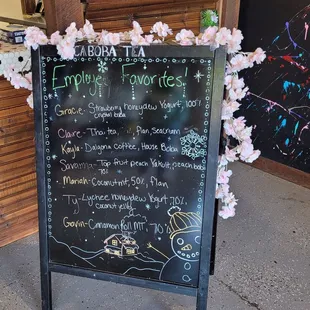 CABORA TEA
Employee Favorites!
Gracie- Strawberry honeydew Yogurt, 100%
crystal boba
Claire- Thai tea, flan, Seacrum
Kayla- Dalgona Coffee, House Boba
Savanna- Top fruit peach Yakult, peach boba
70%
Mariah- Coconut mt, 50%, flan
Ty- Lychee honeydew Yogurt 70%,
coconut jelly
Gavin- Cinnamon Roll MT. 70%